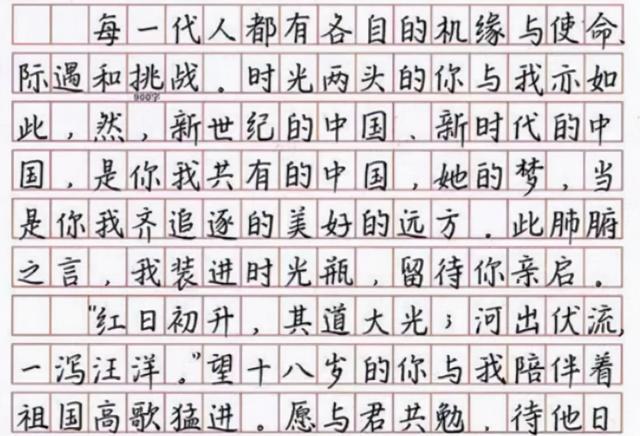 每一代人都有各自的机缘与使命、
际遇和挑战。时光两头的你与我亦如
900字
此，然，新世纪的中国、新时代的中
国，是你我共有的中国，她的梦，当
是你我齐追逐的美好的远方．此肺腑
之言，我装进时光瓶，留待你亲启。
“红日初升，其道大光；河出伏流，
一泻汪洋。”望十八岁的你与我陪伴着
祖国高歌猛进。愿与君共勉，待他日